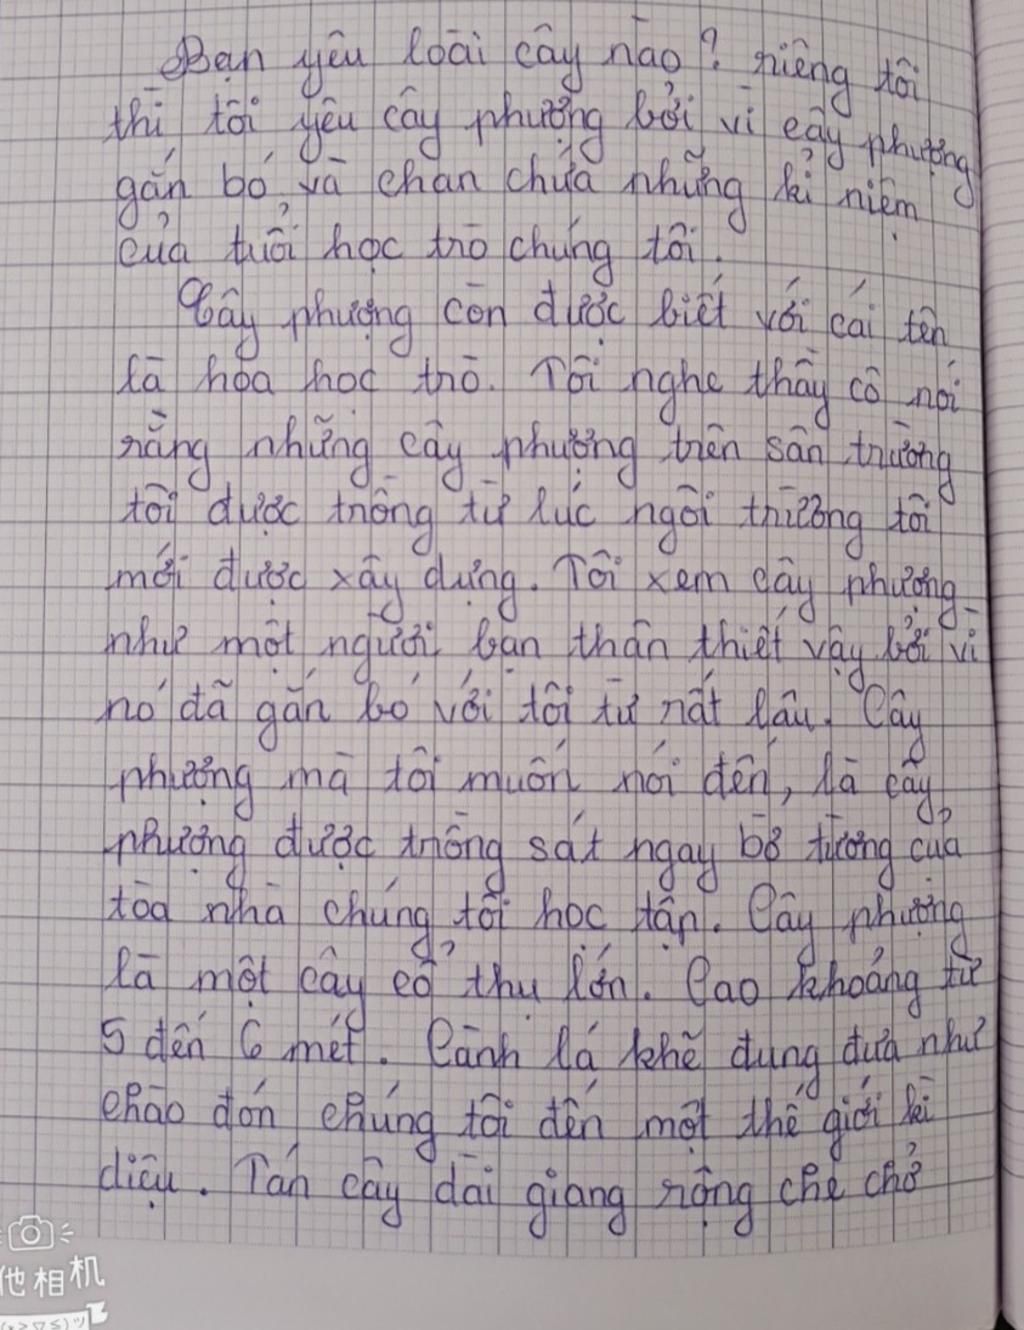 Bạn yêu loài cây nào? riêng tôi
thì tôi yêu cây phượng bởi vì cây phượng
gắn bó và chan chứa những kỉ niệm
của tuổi học trò chúng tôi.
Cây phượng còn được biết với cái tên
là hoa học trò. Tôi nghe thầy cô nói
rằng những cây phượng trên sân trường
tôi được trồng từ lúc ngôi trường tôi
mới được xây dựng. Tôi xem cây phượng
như một người bạn thân thiết vậy bởi vì
nó đã gắn bó với tôi từ rất lâu. Cây
phượng mà tôi muốn nói đến, là cây
phượng được trồng sát ngay bờ tường của
tòa nhà chúng tôi học tập. Cây phượng
là một cây cổ thụ lớn. Cao khoảng từ
5 đến 6 mét. Cành lá khẽ dung đưa như
chào đón chúng tôi đến một thế giới kì
diệu. Tán cây dài giang rộng che chở
他相机
(×≥▽≤)ツ